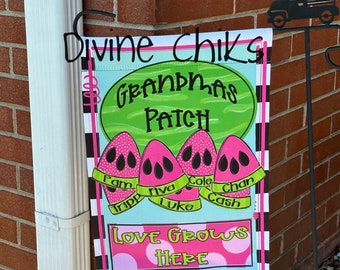 Divine Chiks
GRANDMAS
PATCH
Pam Riva Cole Chan
TRIPP Luke Cash
Love Grows
Here